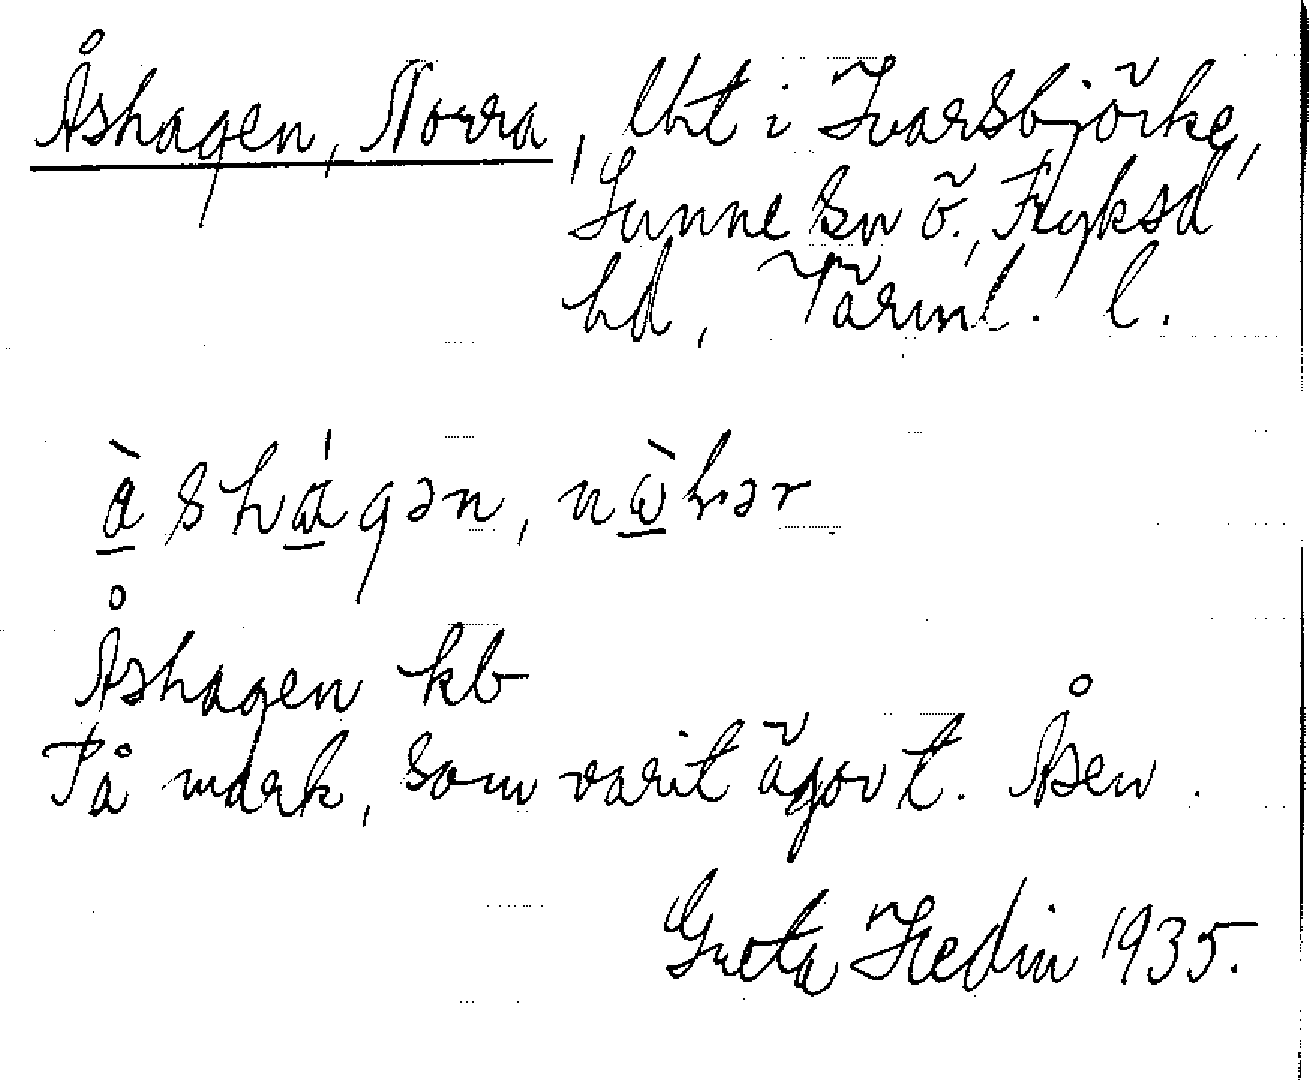 Åshagen, Norra, lht i Ivarsbjörke,
Sunne sn ö., Fryksd
hd, Värml. l.
à shágən, nὼrər
Åshagen kb
På mark, som varit ägor t. Åsen.
Greta Hedin 1935.